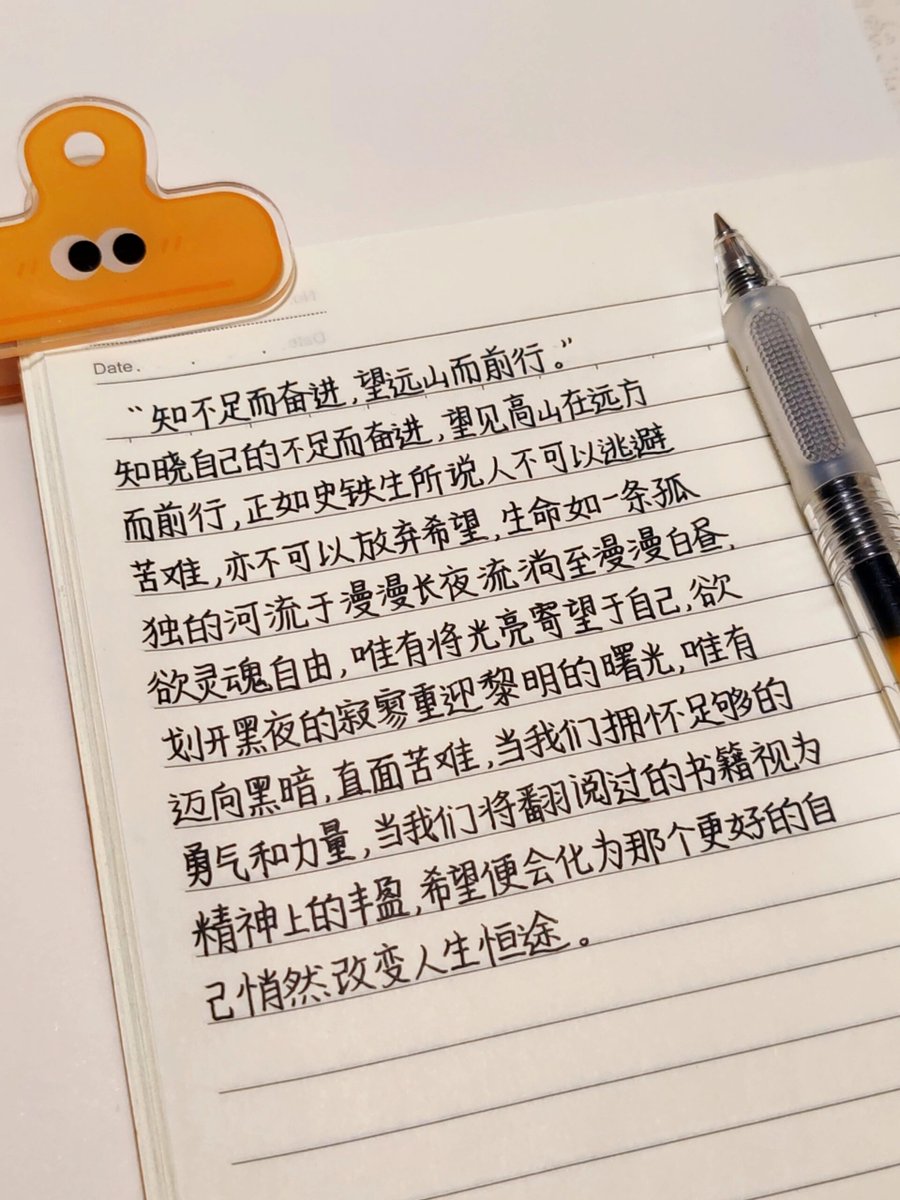 Date.
“知不足而奋进,望远山而前行。”
知晓自己的不足而奋进,望见高山在远方
而前行,正如史铁生所说人不可以逃避
苦难,亦不可以放弃希望,生命如一条孤
独的河流于漫漫长夜流淌至漫漫白昼,
欲灵魂自由,唯有将光亮寄望于自己,欲
划开黑夜的寂寥重迎黎明的曙光,唯有
迈向黑暗,直面苦难,当我们拥怀足够的
勇气和力量,当我们将翻阅过的书籍视为
精神上的丰盈,希望便会化为那个更好的自
己悄然改变人生恒途。